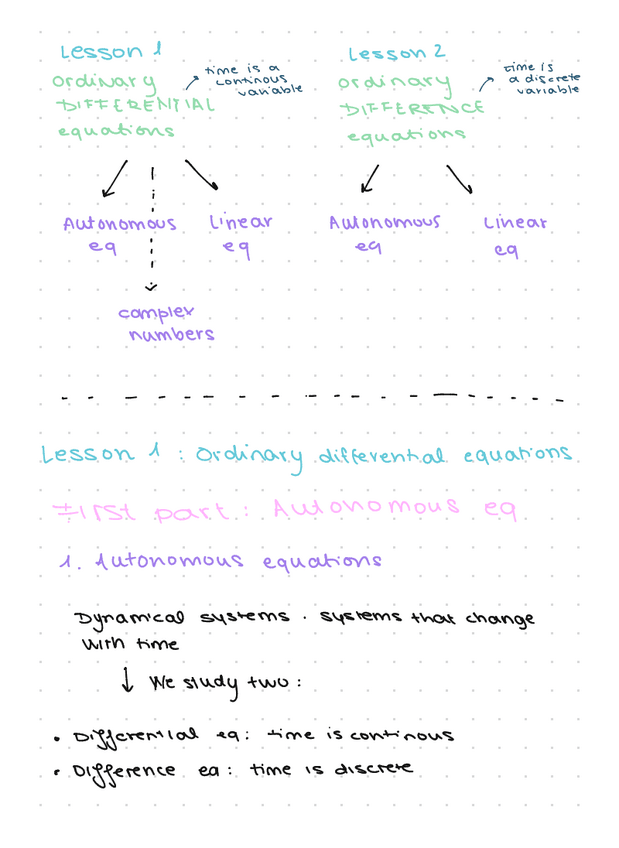 Lesson 1
ordinary
DIFFERENTIAL
equations
time is a
continous
variable
Autonomous
eq
Linear
eq
complex
numbers
Lesson 2
ordinary
DIFFERENCE
equations
time is
a discrete
variable
Autonomous
eq
Linear
eq
Lesson 1 : Ordinary differential equations
First part : Autonomous eq
1. Autonomous equations
Dynamical systems . systems that change
with time
↓ We study two :
• Differential eq : time is continous
• Difference eq : time is discrete